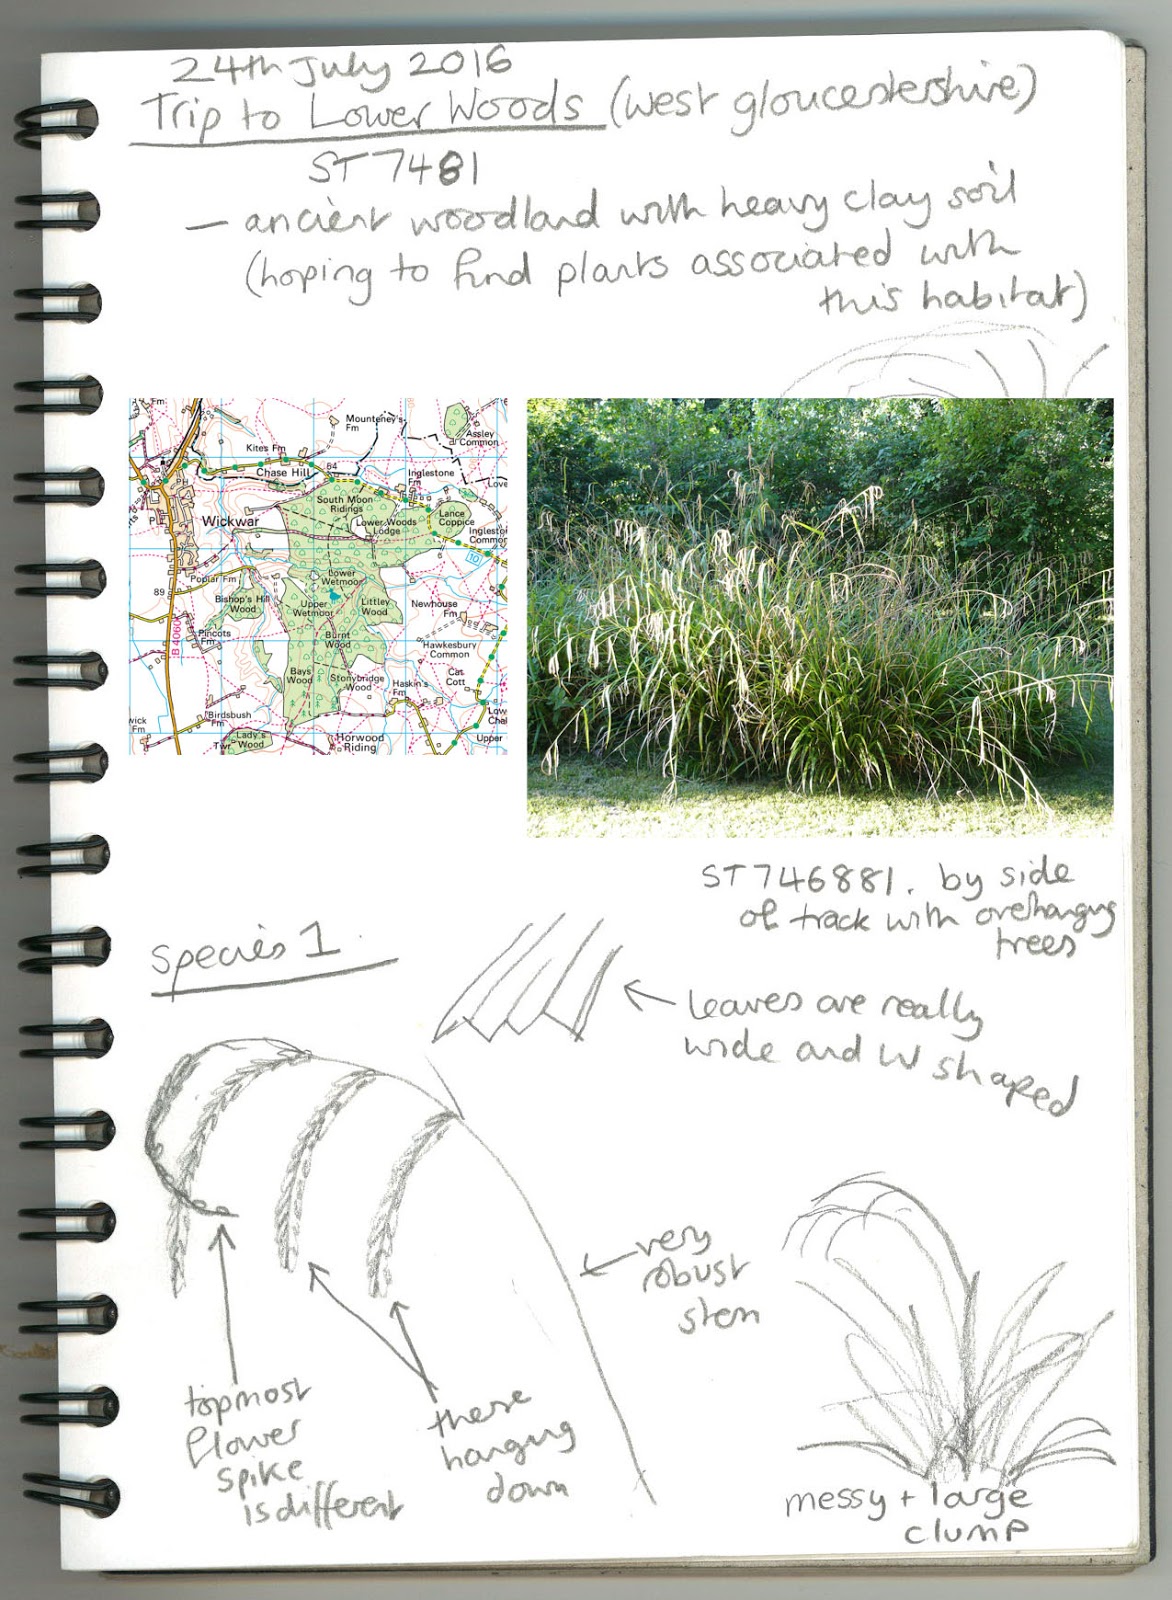 24th July 2016
Trip to Lower Woods (west gloucestershire)
ST7481
— ancient woodland with heavy clay soil
(hoping to find plants associated with
this habitat)
Fm
Mounteney's
Fm
Assley
Common
Kites Fm
64
Chase Hill
Inglestone
Fm
Love
South Moon
Ridings
Lance
Coppice
Wickwar
Lower Woods
Lodge
Inglestone
Common
10
Poplar Fm
Lower
Wetmoor
89
Bishop's Hill
Wood
Upper
Wetmoor
Littley
Wood
Newhouse
Fm
B 4060
Pincots
Fm
Burnt
Wood
Hawkesbury
Common
Bays
Wood
Stonybridge
Wood
Haskin's
Fm
Cat
Cott
wick
Fm
Birdsbush
Fm
Low
Chal
Twr
Lady's
Wood
Horwood
Riding
Upper
ST746881. by side
of track with overhanging
trees
Species 1.
← leaves are really
wide and W shaped
← very
robust
stem
topmost
flower
spike
is different
these
hanging
down
messy + large
clump